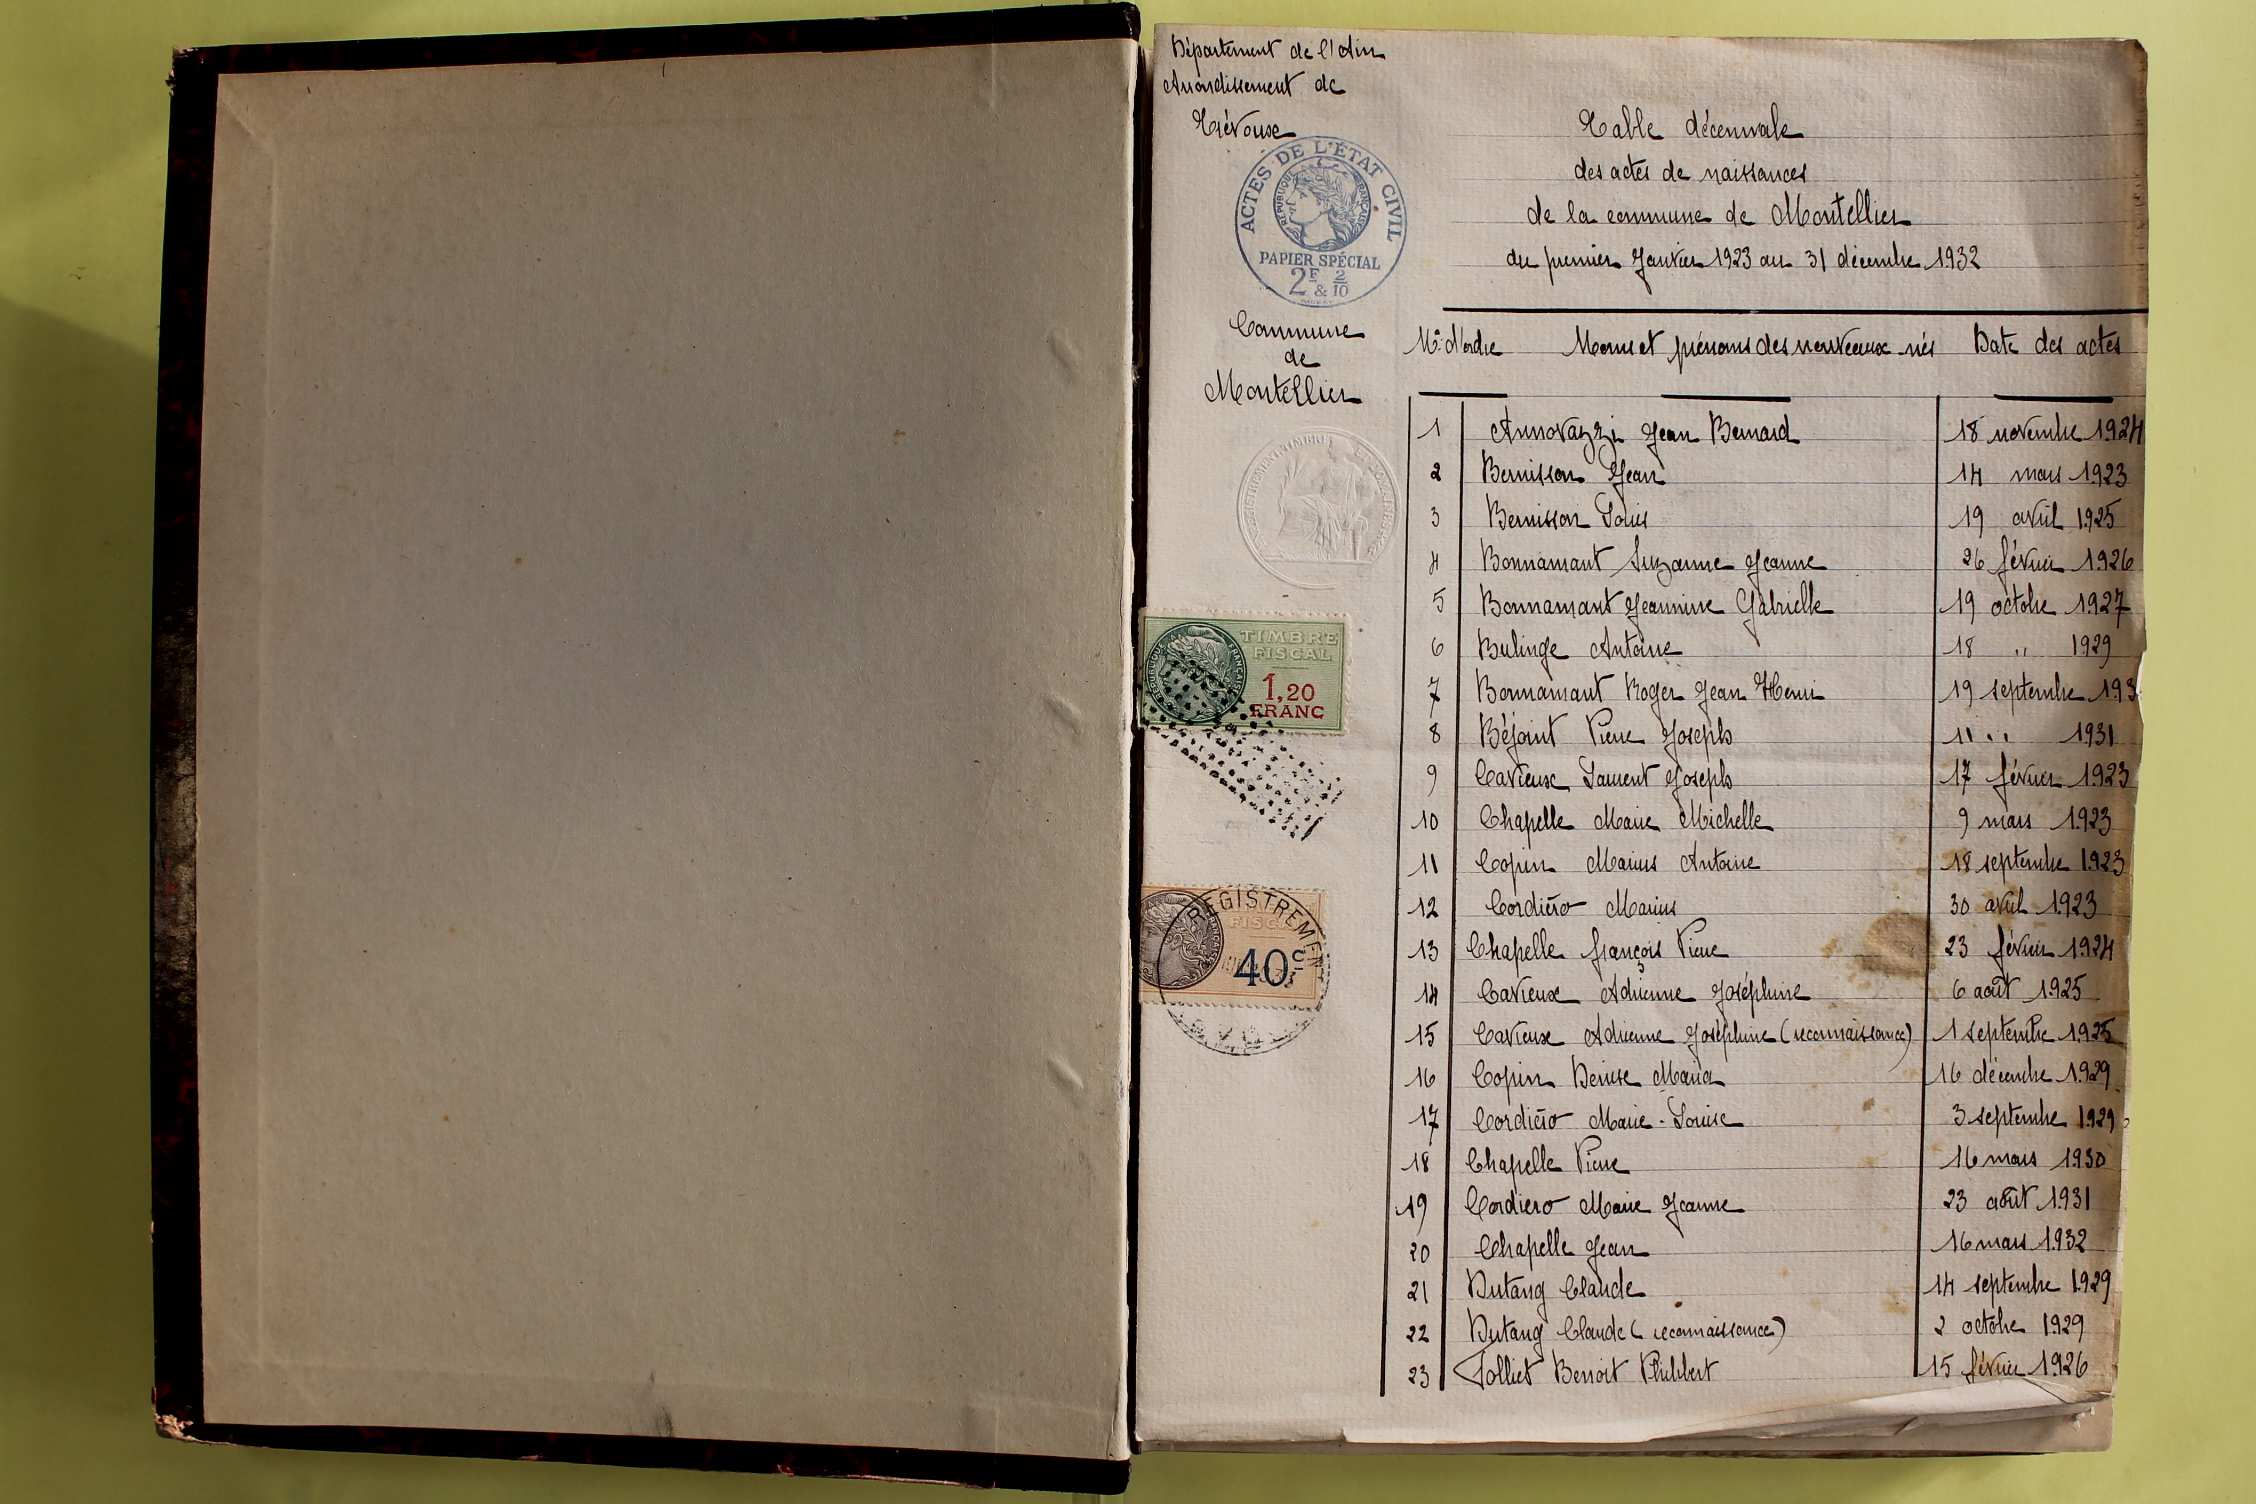 Département de l'Ain
Arrondissement de
Trévoux
ACTES DE L'ÉTAT CIVIL
RÉPUBLIQUE FRANÇAISE
PAPIER SPÉCIAL
2F & 2/10
Commune
de
Montellier
TIMBRE
FISCAL
1,20
FRANC
REGISTREMEN
FISC
40c
Table décennale
des actes de naissances
de la commune de Montellier
du premier Janvier 1923 au 31 décembre 1932
No d'ordre Noms et prénoms des nouveaux-nés Date des actes
1 Annovazzi Jean Bernard 18 novembre 1924
2 Bernisson Jean 14 mars 1923
3 Bernisson Louis 19 avril 1925
4 Bonnamant Suzanne Jeanne 26 février 1926
5 Bonnamant Jeannine Gabrielle 19 octobre 1927
6 Bulinge Antoine 18 " 1929
7 Bonnamant Roger Jean Henri 19 septembre 193
8 Béjoint Pierre Joseph 11 " 1931
9 Cavieux Laurent Joseph 17 février 1923
10 Chapelle Marie Michelle 9 mars 1923
11 Copin Marius Antoine 18 septembre 1923
12 Cordiéro Marius 30 avril 1923
13 Chapelle François Pierre 23 février 1924
14 Cavieux Adrienne Joséphine 6 août 1925
15 Cavieux Adrienne Joséphine (reconnaissance) 1 septembre 1925
16 Copin Denise Maria 16 décembre 1929
17 Cordiéro Marie-Louise 3 septembre 1929
18 Chapelle Pierre 16 mars 1930
19 Cordiero Marie Jeanne 23 août 1931
20 Chapelle Jean 16 mars 1932
21 Dutang Claude 14 septembre 1929
22 Dutang Claude (reconnaissance) 2 octobre 1929
23 Folliet Benoit Philibert 15 février 1926